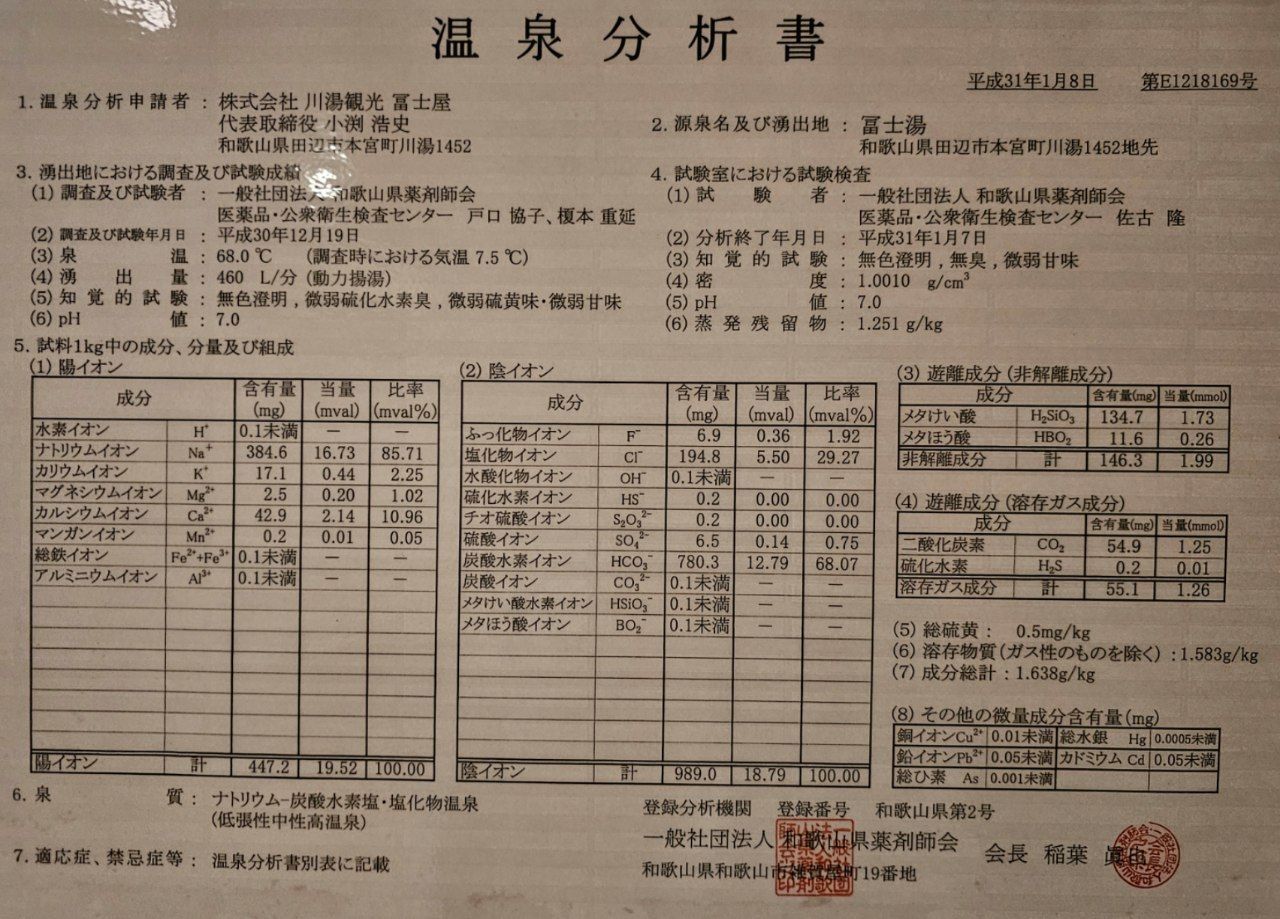 温泉分析書
平成31年1月8日 第E1218169号
1. 温泉分析申請者 : 株式会社 川湯観光 冨士屋
代表取締役 小渕 浩史
和歌山県田辺市本宮町川湯1452
2. 源泉名及び湧出地 : 冨士湯
和歌山県田辺市本宮町川湯1452地先
3. 湧出地における調査及び試験成績
(1) 調査及び試験者 : 一般社団法人 和歌山県薬剤師会
医薬品・公衆衛生検査センター 戸口 協子、榎本 重延
(2) 調査及び試験年月日 : 平成30年12月19日
(3) 泉温 : 68.0 ℃ (調査時における気温 7.5 ℃)
(4) 湧出量 : 460 L/分 (動力揚湯)
(5) 知覚的試験 : 無色澄明 , 微弱硫化水素臭 , 微弱硫黄味・微弱甘味
(6) pH値 : 7.0
4. 試験室における試験検査
(1) 試験者 : 一般社団法人 和歌山県薬剤師会
医薬品・公衆衛生検査センター 佐古 隆
(2) 分析終了年月日 : 平成31年1月7日
(3) 知覚的試験 : 無色澄明 , 無臭 , 微弱甘味
(4) 密度 : 1.0010 g/cm³
(5) pH値 : 7.0
(6) 蒸発残留物 : 1.251 g/kg
5. 試料1kg中の成分、分量及び組成
(1) 陽イオン
成分 含有量(mg) 当量(mval) 比率(mval%)
水素イオン H⁺ 0.1未満 — —
ナトリウムイオン Na⁺ 384.6 16.73 85.71
カリウムイオン K⁺ 17.1 0.44 2.25
マグネシウムイオン Mg²⁺ 2.5 0.20 1.02
カルシウムイオン Ca²⁺ 42.9 2.14 10.96
マンガンイオン Mn²⁺ 0.2 0.01 0.05
総鉄イオン Fe²⁺+Fe³⁺ 0.1未満 — —
アルミニウムイオン Al³⁺ 0.1未満 — —
陽イオン 計 447.2 19.52 100.00
(2) 陰イオン
成分 含有量(mg) 当量(mval) 比率(mval%)
ふっ化物イオン F⁻ 6.9 0.36 1.92
塩化物イオン Cl⁻ 194.8 5.50 29.27
水酸化物イオン OH⁻ 0.1未満 — —
硫化水素イオン HS⁻ 0.2 0.00 0.00
チオ硫酸イオン S₂O₃²⁻ 0.2 0.00 0.00
硫酸イオン SO₄²⁻ 6.5 0.14 0.75
炭酸水素イオン HCO₃⁻ 780.3 12.79 68.07
炭酸イオン CO₃²⁻ 0.1未満 — —
メタけい酸水素イオン HSiO₃⁻ 0.1未満 — —
メタほう酸イオン BO₂⁻ 0.1未満 — —
陰イオン 計 989.0 18.79 100.00
(3) 遊離成分 (非解離成分)
成分 含有量(mg) 当量(mmol)
メタけい酸 H₂SiO₃ 134.7 1.73
メタほう酸 HBO₂ 11.6 0.26
非解離成分 計 146.3 1.99
(4) 遊離成分 (溶存ガス成分)
成分 含有量(mg) 当量(mmol)
二酸化炭素 CO₂ 54.9 1.25
硫化水素 H₂S 0.2 0.01
溶存ガス成分 計 55.1 1.26
(5) 総硫黄 : 0.5mg/kg
(6) 溶存物質 (ガス性のものを除く) : 1.583g/kg
(7) 成分総計 : 1.638g/kg
(8) その他の微量成分含有量(mg)
銅イオンCu²⁺ 0.01未満 総水銀 Hg 0.0005未満
鉛イオンPb²⁺ 0.05未満 カドミウム Cd 0.05未満
総ひ素 As 0.001未満
6. 泉質 : ナトリウム-炭酸水素塩・塩化物温泉
(低張性中性高温泉)
7. 適応症、禁忌症等 : 温泉分析書別表に記載
登録分析機関 登録番号 和歌山県第2号
一般社団法人 和歌山県薬剤師会 会長 稲葉 眞也
和歌山県和歌山市雑賀屋町19番地